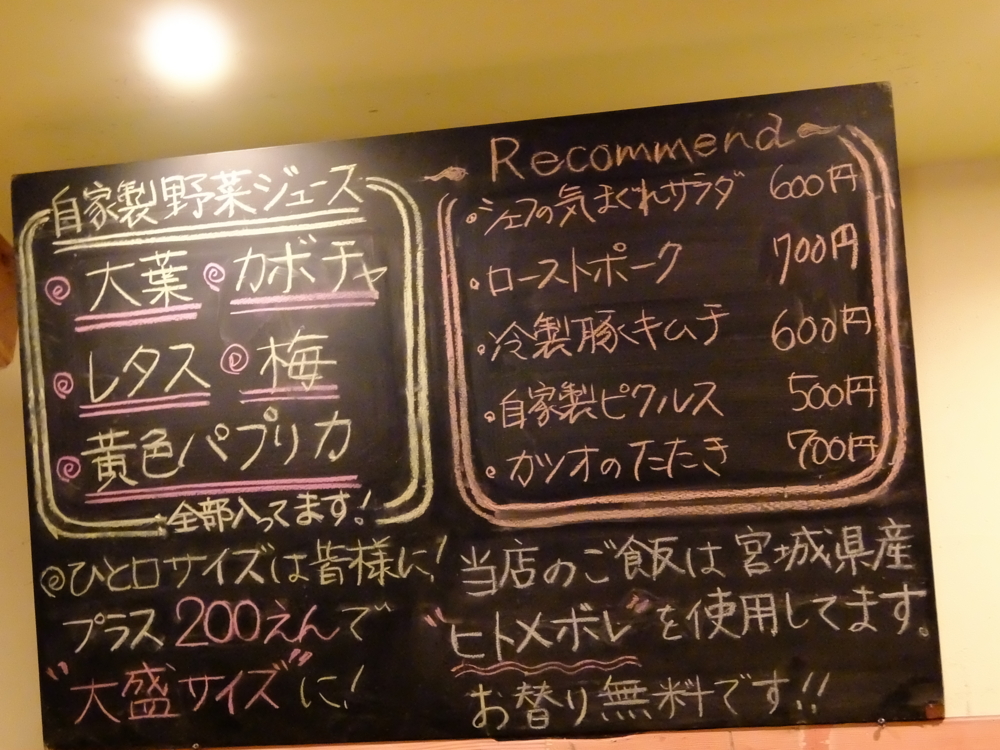 自家製野菜ジュース
大葉 カボチャ
レタス 梅
黄色パプリカ
全部入ってます!
ひと口サイズは皆様に!
プラス200えんで
"大盛サイズ"に!
Recommend
・シェフの気まぐれサラダ 600円
・ローストポーク 700円
・冷製豚キムチ 600円
・自家製ピクルス 500円
・カツオのたたき 700円
当店のご飯は宮城県産
"ヒトメボレ"を使用してます。
お替り無料です!!